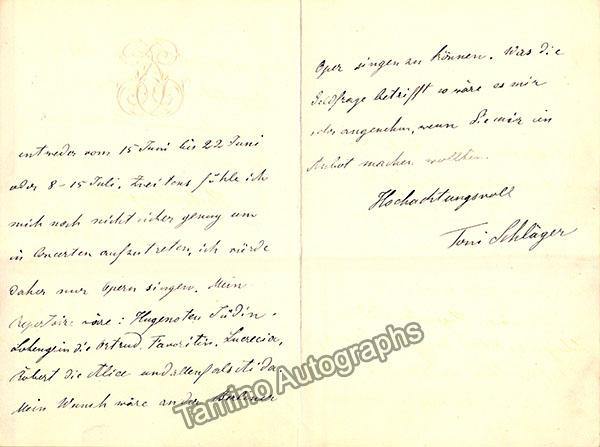 entweder vom 15 Juni bis 22 Juni
oder 8-15 Juli. Zweitens fühle ich
mich noch nicht sicher genug um
in Concerten aufzutreten, ich würde
daher nur Opern singen. Mein
Repertoire wäre: Hugenoten Jüdin.
Lohengrin die Ortrud, Favoritin, Lucrecia,
Robert die Alice und allenfals Aida
Mein Wunsch wäre an der Berliner
Oper singen zu können. Was die
Geldfrage betrifft so wäre es mir
sehr angenehm, wenn Sie mir ein
Anbot machen wollten.
Hochachtungsvoll
Toni Schläger
Tamino Autographs